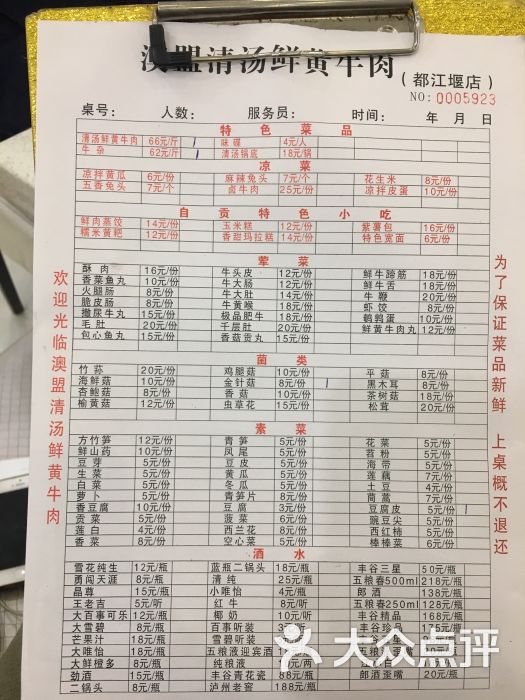 澳盟清汤鲜黄牛肉（都江堰店）
NO：0005923
桌号： 人数： 服务员： 时间： 年 月 日
特色菜品
清汤鲜黄牛肉 66元/斤 1 味碟 4元/人
牛杂 62元/斤 1 清汤锅底 18元/锅
凉菜
凉拌黄瓜 6元/份 麻辣兔头 7元/个 花生米 8元/份
五香兔头 7元/个 卤牛肉 25元/份 凉拌皮蛋 10元/份
自贡特色小吃
鲜肉蒸饺 14元/份 玉米糕 12元/份 紫薯包 16元/份
糯米黄粑 12元/份 香甜玛拉糕 14元/份 特色宽面 6元/份
荤菜
酥肉 16元/份 牛头皮 12元/份 鲜牛蹄筋 18元/份
香菜鱼丸 15元/份 牛大肠 12元/份 鲜牛舌 18元/份
火腿肠 8元/份 牛大肚 14元/份 牛鞭 20元/份
脆皮肠 8元/份 牛黄喉 18元/份 虾饺 8元/份
撒尿牛丸 15元/份 极品肥牛 18元/份 鹌鹑蛋 10元/份
毛肚 20元/份 千层肚 20元/份 鲜黄牛肉丸 12元/份
包心鱼丸 15元/份 香菇贡丸 15元/份
菌类
竹荪 20元/份 鸡腿菇 10元/份 平菇 8元/份
海鲜菇 10元/份 金针菇 8元/份 1 黑木耳 8元/份
杏鲍菇 8元/份 香菇 10元/份 茶树菇 18元/份
榆黄菇 12元/份 虫草花 15元/份 松茸 20元/份
素菜
方竹笋 12元/份 青笋 5元/份 花菜 5元/份
鲜山药 10元/份 凤尾 5元/份 苕粉 5元/份
豆芽 5元/份 豆皮 5元/份 海带 5元/份
生菜 5元/份 黄瓜 5元/份 莲藕 7元/份
白菜 5元/份 冬瓜 5元/份 土豆 4元/份
萝卜 5元/份 青笋片 8元/份 茼蒿 7元/份
香豆腐 10元/份 豆腐 3元/份 豆腐皮 5元/份 1
贡菜 5元/份 菠菜 5元/份 豌豆尖 5元/份
莲白 4元/份 西兰花 8元/份 西红柿 5元/份
香菜 8元/份 空心菜 5元/份 棒棒菜 6元/份
酒水
雪花纯生 12元/瓶 蓝瓶二锅头 18元/瓶 丰谷三星 50元/瓶
勇闯天涯 8元/瓶 清纯 25元/瓶 五粮春500ml 218元/瓶
晶尊 15元/瓶 小唯怡 4元/瓶 郎酒 138元/瓶
王老吉 5元/听 红牛 8元/听 五粮春250ml 128元/瓶
大百事可乐 12元/瓶 椰奶 10元/听 丰谷精品 168元/瓶
大雪碧 8元/瓶 百事听装 丰谷珍品
芒果汁 15元/瓶 雪碧听装
大唯怡 15元/瓶 五粮液迎宾酒
大鲜橙多 8元/瓶 纯粮液
劲酒 15元/瓶 丰谷青花瓷 88元/瓶 郎酒歪嘴 20元/瓶
二锅头 8元/瓶 泸州老窖 188元/瓶
欢迎光临澳盟清汤鲜黄牛肉
为了保证菜品新鲜 上桌概不退还
大众点评